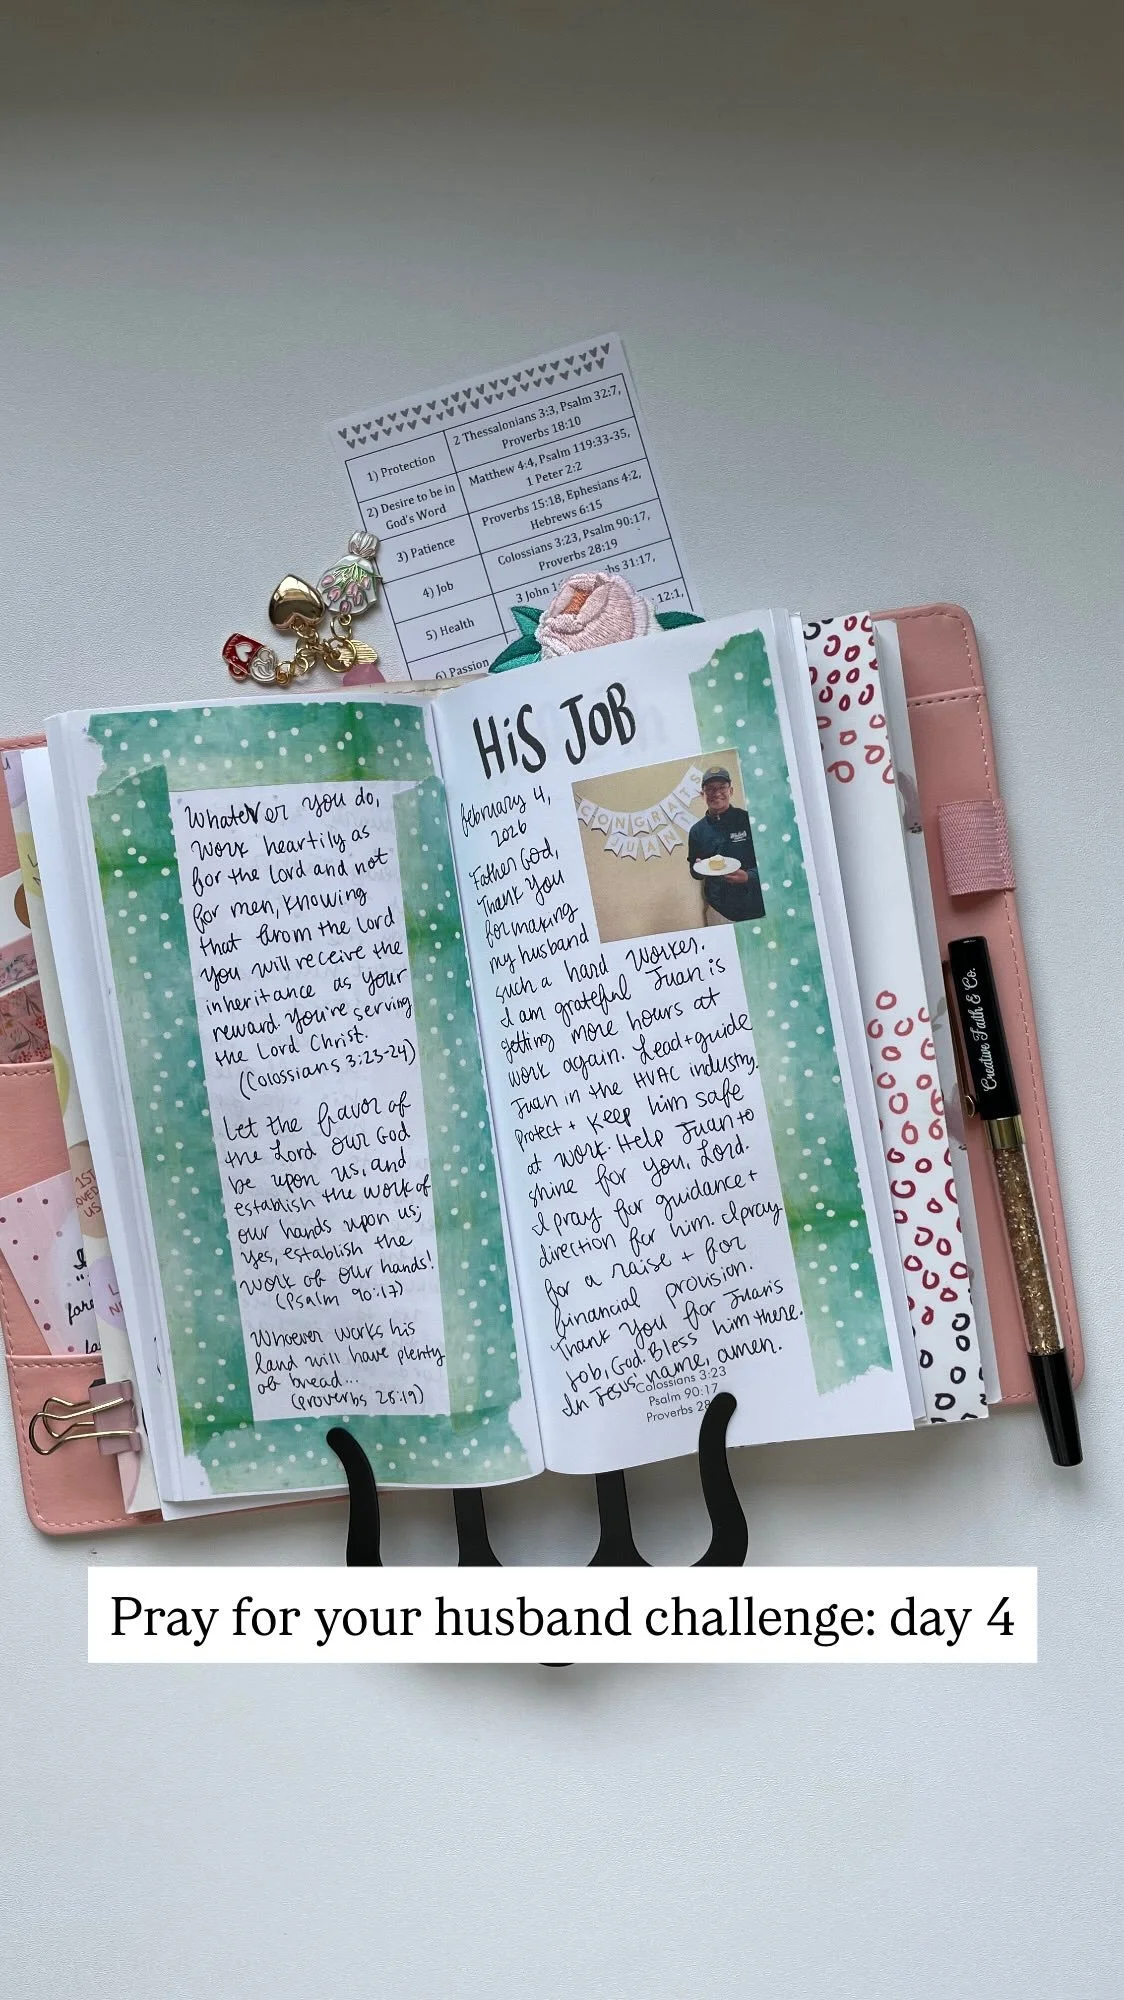 2 Thessalonians 3:3, Psalm 32:7,
1) Protection
Proverbs 18:10
Matthew 4:4, Psalm 119:33-35,
2) Desire to be in
God's Word
1 Peter 2:2
Proverbs 15:18, Ephesians 4:2,
3) Patience
Hebrews 6:15
Colossians 3:23, Psalm 90:17,
4) Job
Proverbs 28:19
3 John
bs 31:17,
5) Health
12:1,
6) Passion
Whatever you do,
work heartily as
for the Lord and not
for men, knowing
that from the Lord
you will receive the
inheritance as your
reward. You're serving
the Lord Christ.
(Colossians 3:23-24)
Let the favor of
the Lord our God
be upon us, and
establish the work of
our hands upon us;
yes, establish the
work of our hands!
(Psalm 90:17)
Whoever works his
land will have plenty
of bread...
(Proverbs 28:19)
HiS JOB
CONGRATS
JUAN
February 4,
2026
Father God,
Thank You
for making
my husband
such a hard worker.
I am grateful Juan is
getting more hours at
work again. Lead + guide
Juan in the HVAC industry.
Protect + keep him safe
at work. Help Juan to
shine for you, Lord.
I pray for guidance +
direction for him. I pray
for a raise + for
financial provision.
Thank You for Juan's
job, God. Bless him there.
In Jesus' name, amen.
Colossians 3:23
Psalm 90:17
Proverbs 28
Creative Faith & Co.
1ST
US
Pray for your husband challenge: day 4